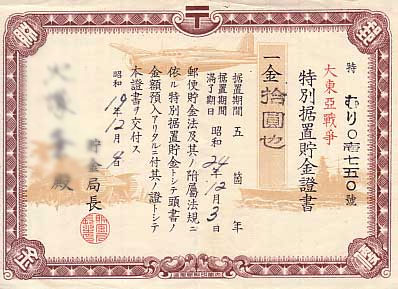 特 むり〇壱七五〇號
大東亞戰爭
特別据置貯金證書
一金拾圓也
据置期間 五箇年
据置期間滿了期日 昭和24年12月3日
郵便貯金法及其ノ附屬法規ニ
依ル特別据置貯金トシテ頭書ノ
金額預入アリタルニ付其ノ證トシテ
本證書ヲ交付ス
昭和19年12月4日
貯金局長
殿